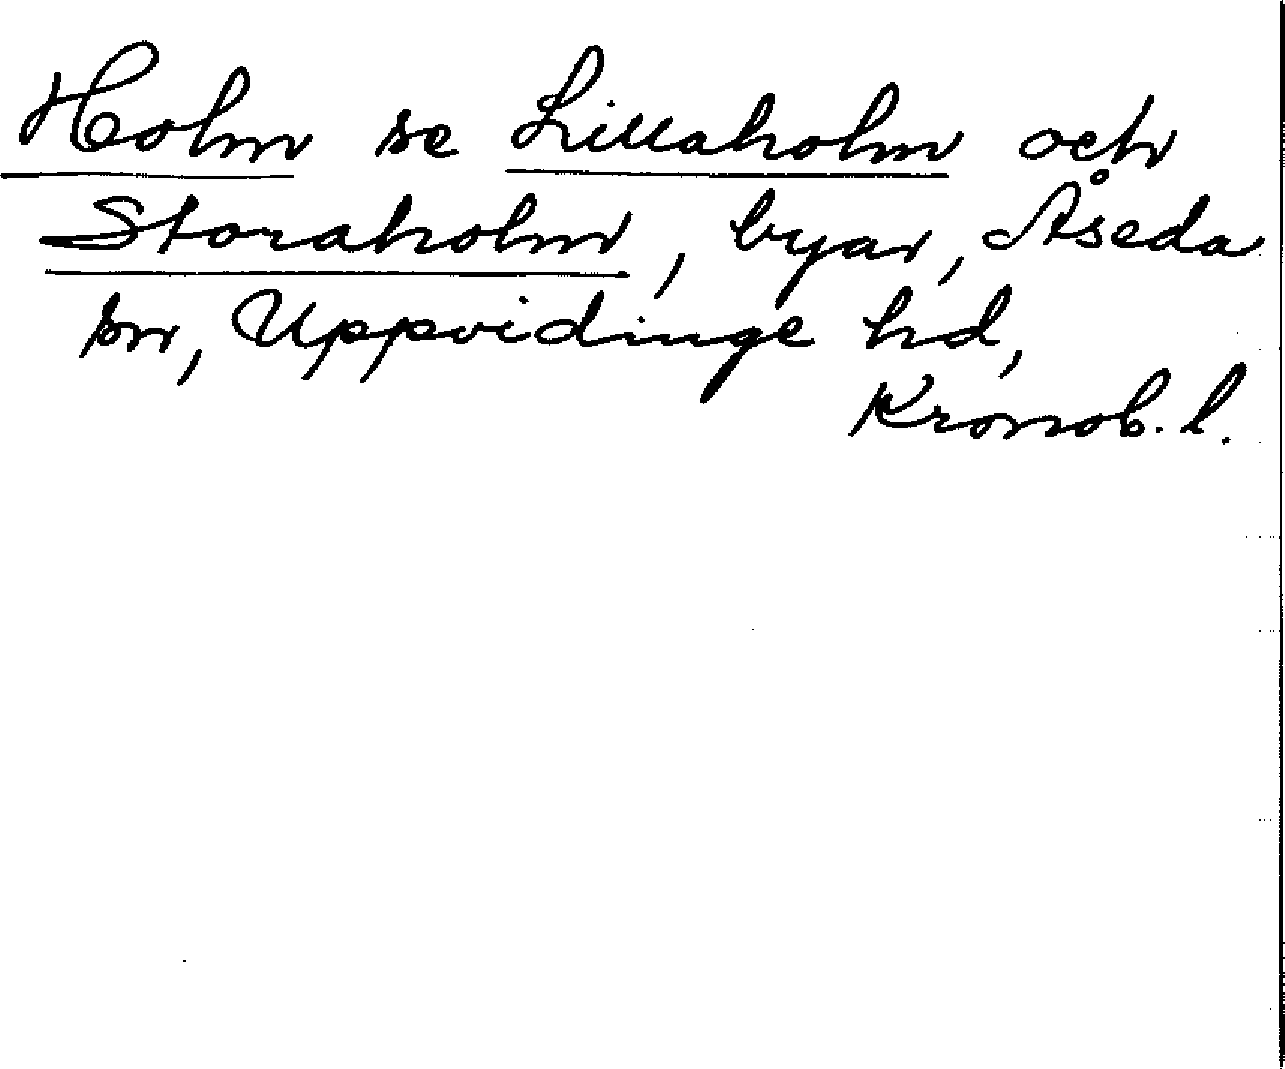 Holm se Lillaholm och
Storaholm, byar, Åseda
sn, Uppvidinge hd,
Kronob. l.